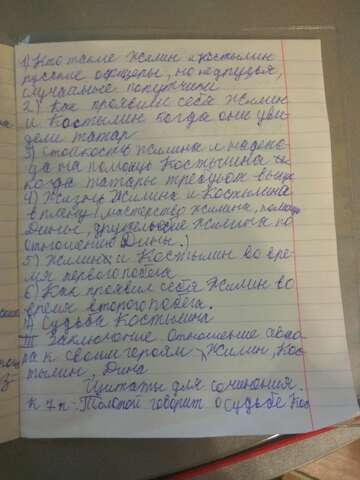 1) Кто такие Жилин и Костылин
русские офицеры, но не друзья,
случайные попутчики
2) Как проявили себя Жилин
и Костылин когда они уви
дели татар
3) Стойкость Жилина и надеж
да на помощь Костылина
когда татары требуют выкуп
4) Жизнь Жилина и Костылина
в плену (мастерство Жилина, помощь
Дины, Жилина по
отношению Дины.)
5) Жилин и Костылин во вре
мя первого побега
6) Как проявил себя Жилин во
время второго побега.
7) Судьба Костылина
III Заключение Отношение авто
ра к своим героям Жилин, Кос
тылин, Дина
Цитаты для сочинения.
К 7 п - Толстой говорит о судьбе Кос